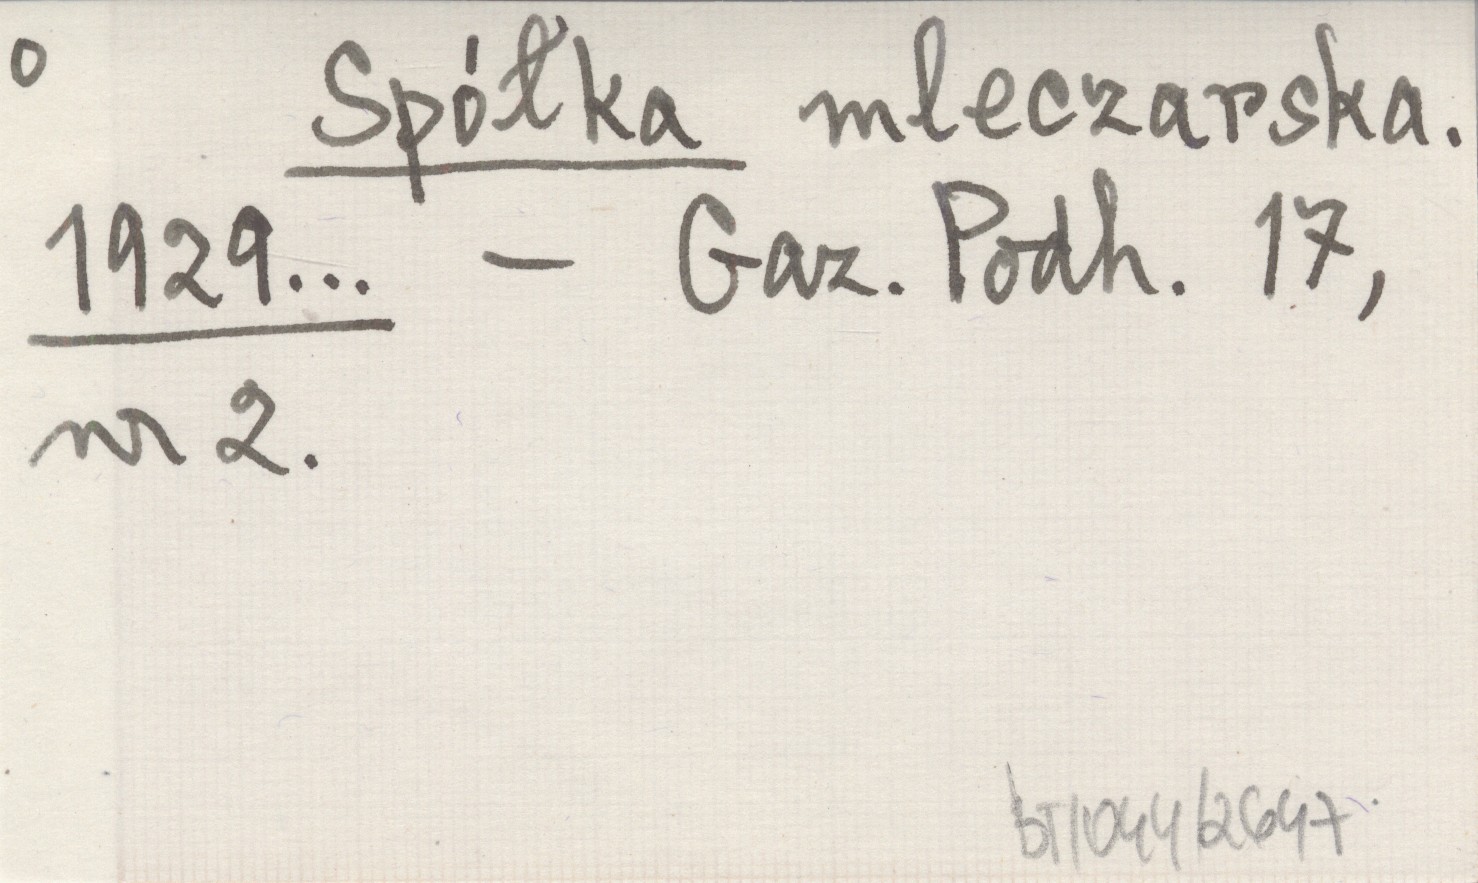 o Spółka mleczarska.
1929... — Gaz. Podh. 17,
nr 2.
BT/044/2647